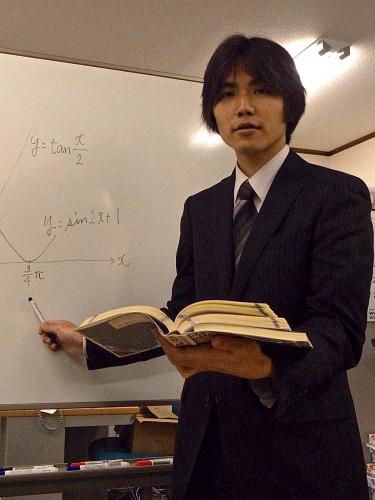 y = tan x/2
y = sin2x+1
x
3/4 π